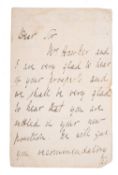 Dear Sir
Mr Hooker and
I are very glad to hear
of your prospects and
we shall be very glad
to hear that you are
settled in your new
position. He will get
you recommendatory